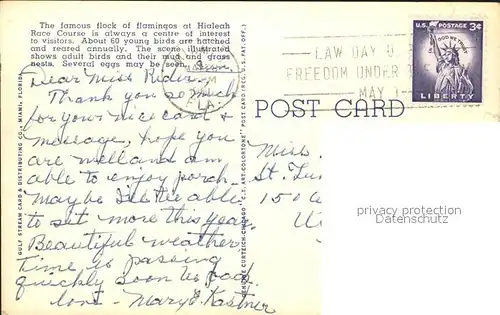 The famous flock of flamingos at Hialeah
Race Course is always a centre of interest
to visitors. About 60 young birds are hatched
and reared annually. The scene illustrated
shows adult birds and their mud and grass
nests. Several eggs may be seen.
Dear Miss Rider—
Thank you so much
for your nice card &
message, hope you
are well and am
able to enjoy porch.
Maybe I'll be able
to set more this year.
Beautiful weather
Time is passing
quickly soon be
love - Mary E. Kastner
GULF STREAM CARD & DISTRIBUTING CO., MIAMI, FLORIDA
GENUINE CURTEICH-CHICAGO "C.T. ART-COLORTONE" POST CARD (REG. U.S. PAT. OFF.)
M
FLA.
LAW DAY U
FREEDOM UNDER
MAY 1
U.S. POSTAGE 3¢
IN GOD WE TRUST
LIBERTY
POST CARD
Miss
St. Lu
150
privacy protection
Datenschutz